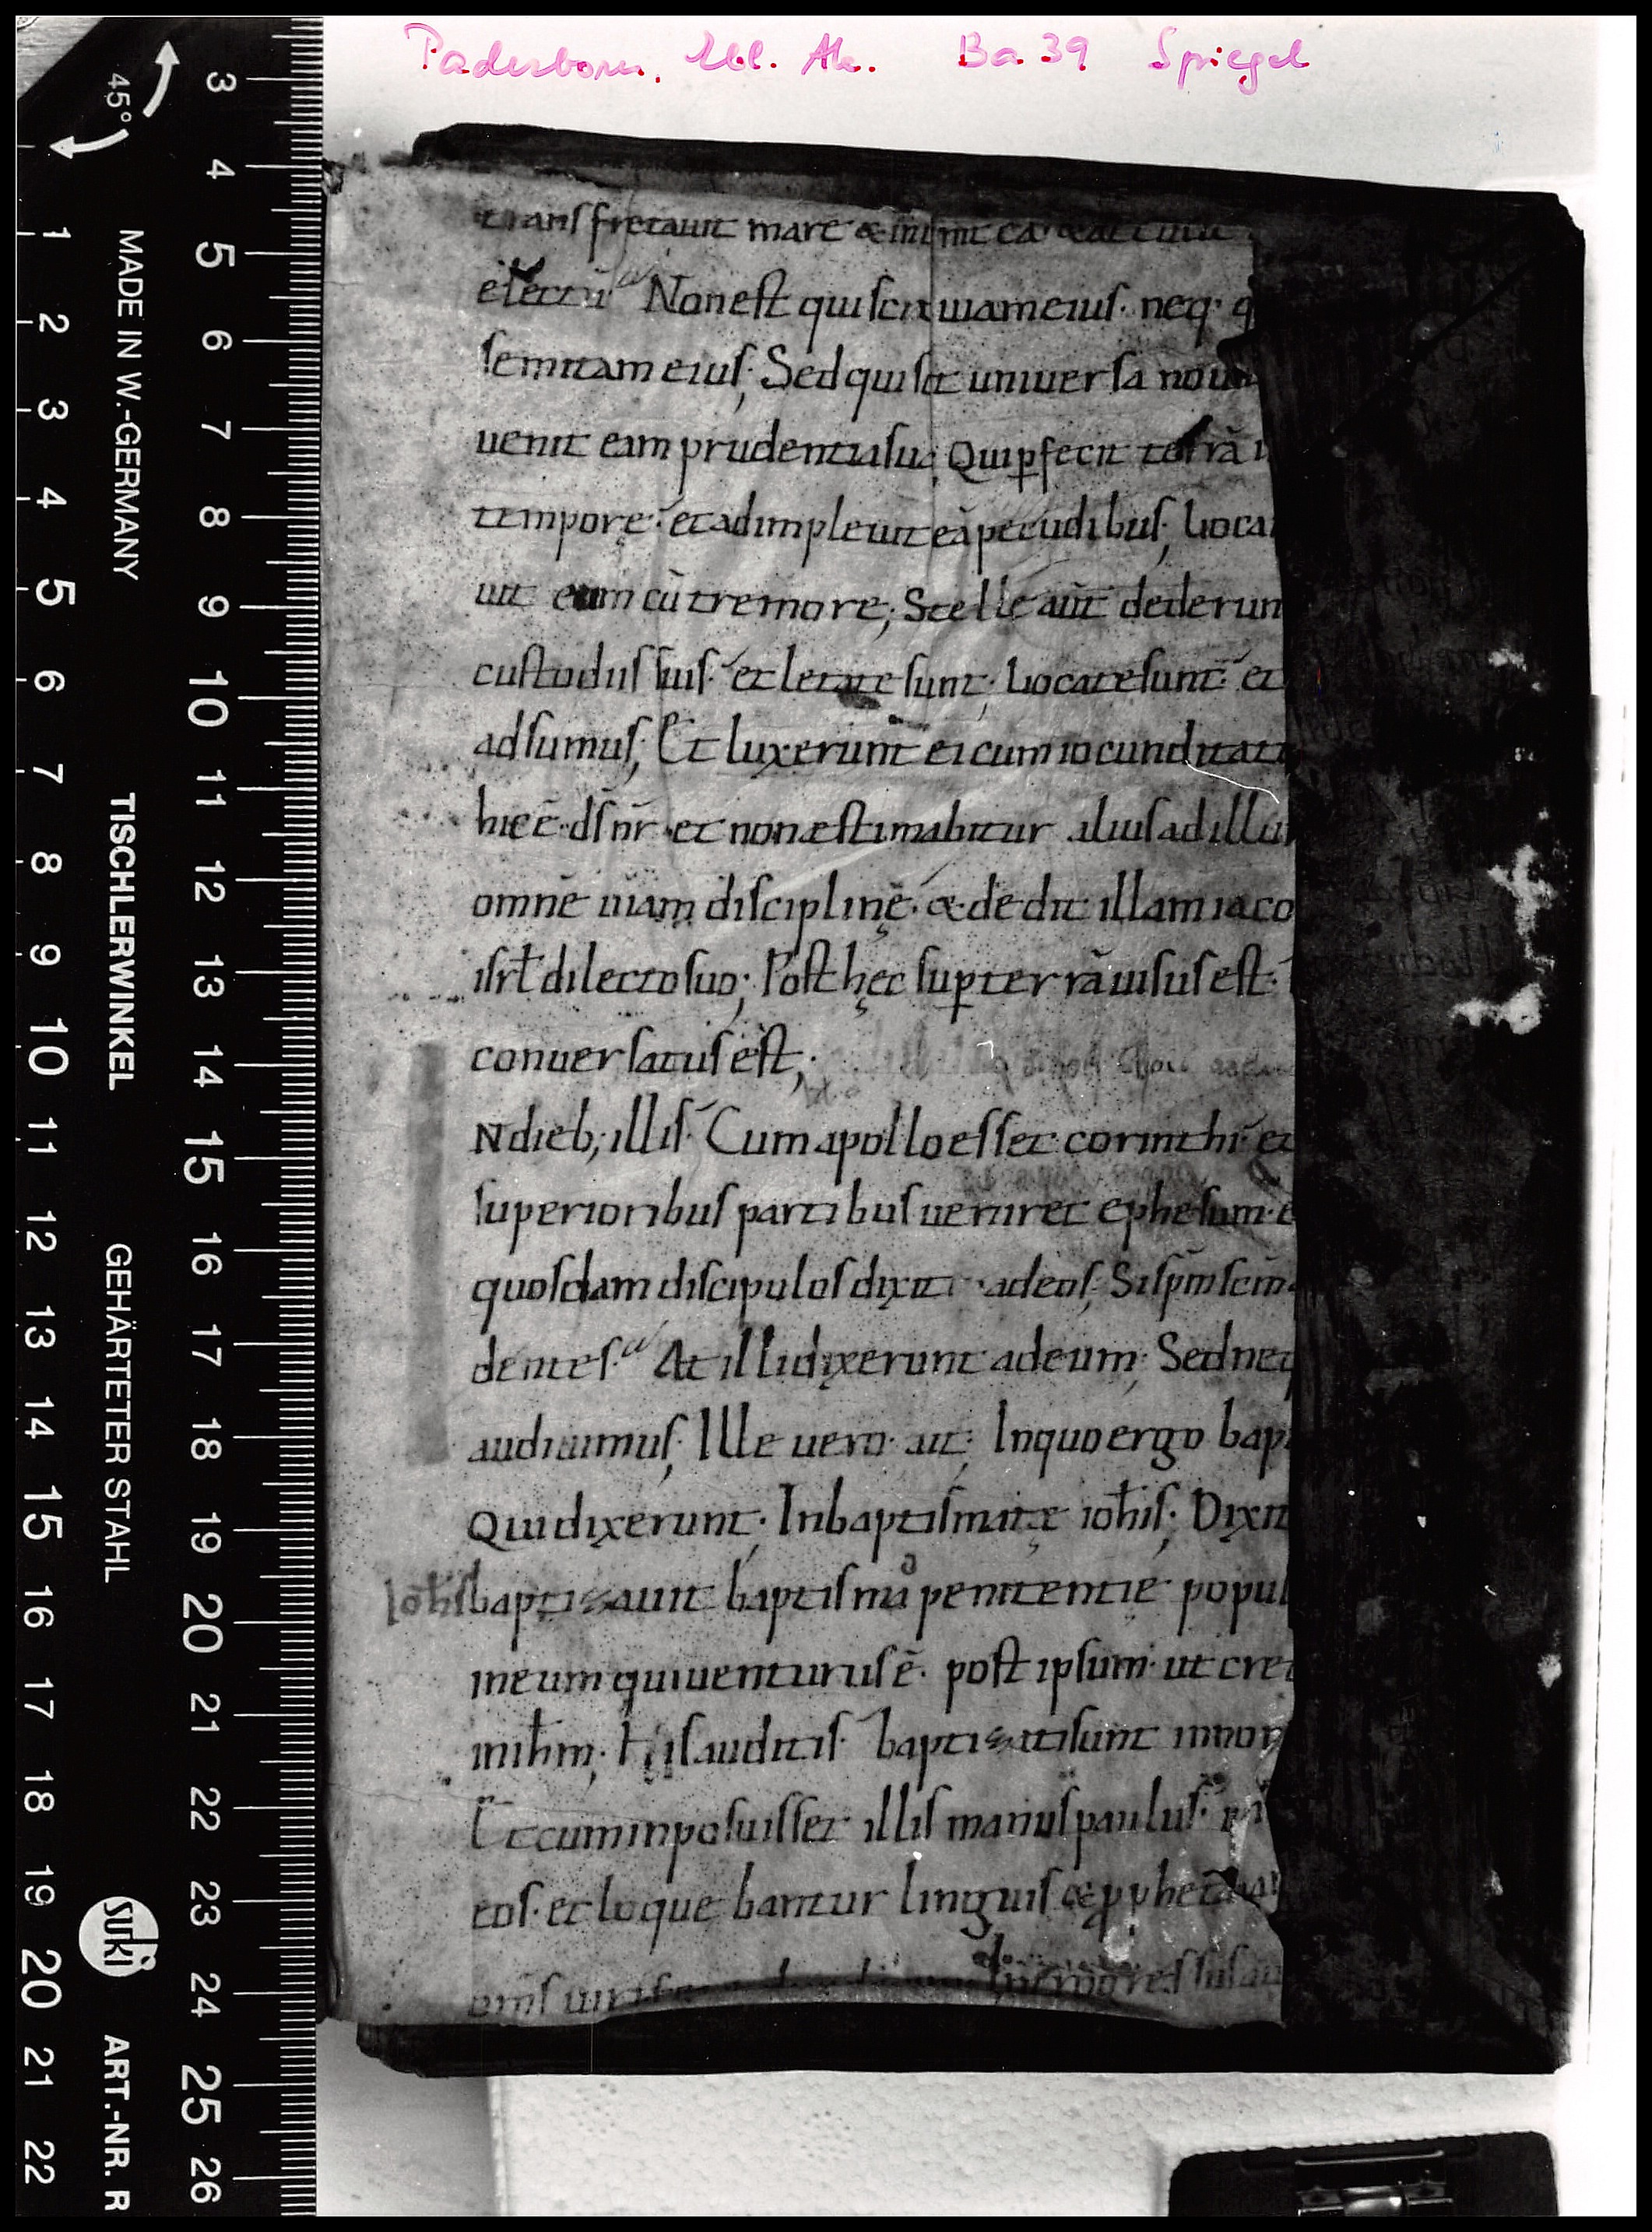 Paderborn, Ebl. Ak. Ba 39 Spiegel
transfretauit mare & inuenit eā
electū Non est qui scit uiam eius· neq· q
semitam eius; Sed qui scit uniuersa nouit
uenit eam prudentia sua; Qui pfecit terrā i
tempore· et adimpleuit eā pecudibus; Uocau
uit eum cū tremore; Stelle aūt dederun
custodiis suis· et letate sunt; Uocate sunt· et
adsumus; Et luxerunt ei cum iocunditate
hic ē ds nr· et non æstimabitur alius ad illū
omnē uiam disciplinę· & dedit illam iaco
isrl dilecto suo; Post hęc sup terrā uisus est·
conuersatus est;
Ndieb; illis· Cum apollo esset corinthi· et
superioribus partibus ueniret ephesum· e
quosdam discipulos dixit ad eos; Si spm scm
dentes· At illi dixerunt ad eum; Sed neq
audiuimus; Ille uero ait; In quo ergo bapt
Qui dixerunt· In baptismate iohis; Dixit
Iohis baptizauit baptismū penitentie popul
in eum qui uenturus ē· post ipsum· ut cred
in ihm; His auditis baptizati sunt in nom
Et cum inposuisset illis manus paulus·
eos· et loquebantur linguis & pphetabant
MADE IN W.-GERMANY TISCHLERWINKEL GEHÄRTETER STAHL SUKI ART.-NR. R
45°
3 4 5 6 7 8 9 10 11 12 13 14 15 16 17 18 19 20 21 22 23 24 25 26
1 2 3 4 5 6 7 8 9 10 11 12 13 14 15 16 17 18 19 20 21 22